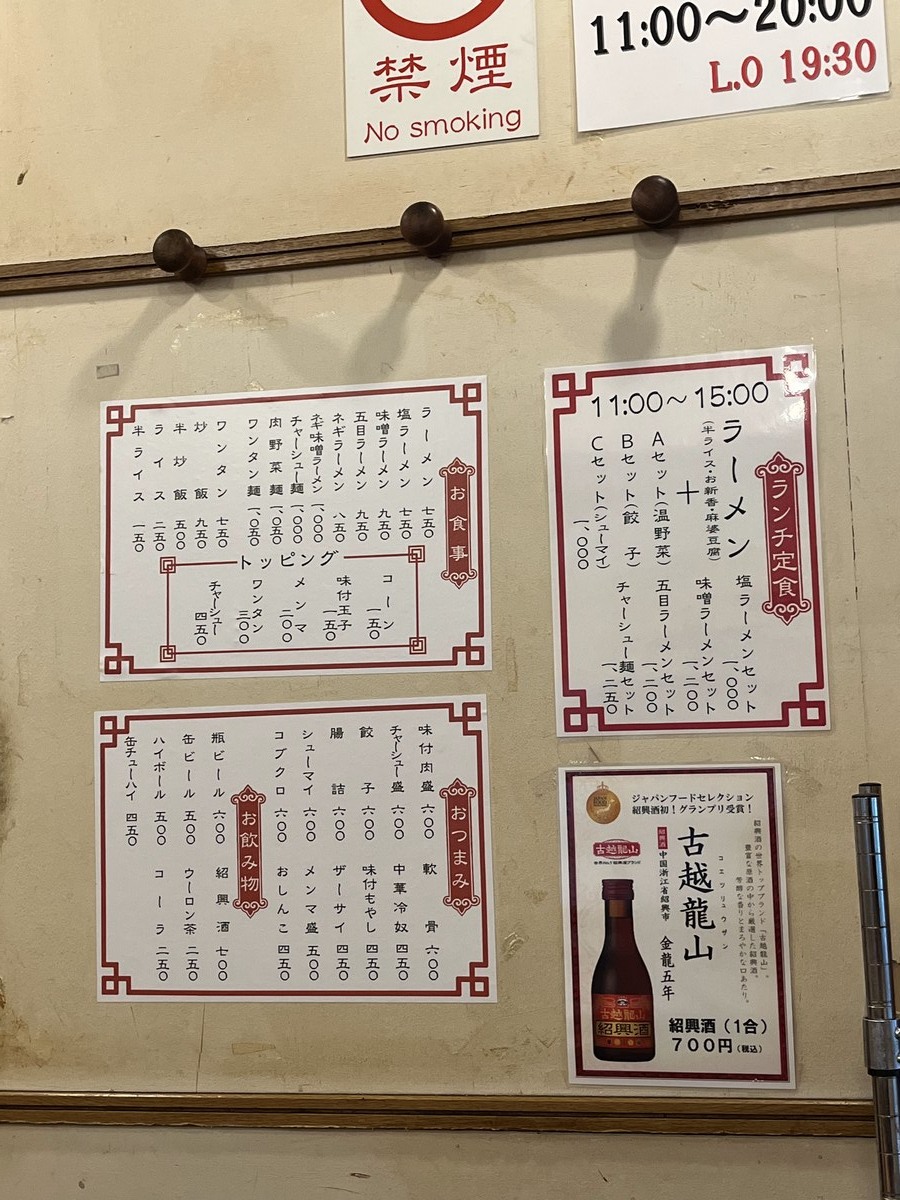 禁煙
No smoking
11:00～20:00
L.O 19:30
お食事
ラーメン 七五〇
塩ラーメン 七五〇
味噌ラーメン 九五〇
五目ラーメン 九五〇
ネギラーメン 八五〇
ネギ味噌ラーメン 一、〇〇〇
チャーシュー麺 一、〇〇〇
肉野菜麺 一、〇五〇
ワンタン麺 一、〇五〇
ワンタン 七五〇
炒飯 九五〇
半炒飯 五〇〇
ライス 二五〇
半ライス 一五〇
トッピング
コーン 一五〇
味付玉子 一五〇
メンマ 二〇〇
ワンタン 三〇〇
チャーシュー 四五〇
11:00～15:00
ランチ定食
ラーメン
(半ライス・お新香・麻婆豆腐)
＋
Aセット(温野菜)
Bセット(餃子)
Cセット(シューマイ)
一、〇〇〇
塩ラーメンセット 一、〇〇〇
味噌ラーメンセット 一、二〇〇
五目ラーメンセット 一、二〇〇
チャーシュー麺セット 一、二五〇
おつまみ
味付肉盛 六〇〇
チャーシュー盛 六〇〇
餃子 六〇〇
腸詰 六〇〇
シューマイ 六〇〇
コブクロ 六〇〇
軟骨 六〇〇
中華冷奴 四五〇
味付もやし 四五〇
ザーサイ 四五〇
メンマ盛 五〇〇
おしんこ 四五〇
お飲み物
瓶ビール 六〇〇
缶ビール 五〇〇
ハイボール 五〇〇
缶チューハイ 四五〇
紹興酒 七〇〇
ウーロン茶 二五〇
コーラ 二五〇
ジャパンフードセレクション
紹興酒初！グランプリ受賞！
紹興酒の世界トップブランド「古越龍山」。
豊富な原酒の中から厳選した紹興酒。
芳醇な香りとまろやかな口あたり。
コエツリュウザン
古越龍山
紹興酒
中国浙江省紹興市
金龍五年
古越龍山
世界No.1紹興酒ブランド
古越龍山
紹興酒
紹興酒（1合）
700円(税込)